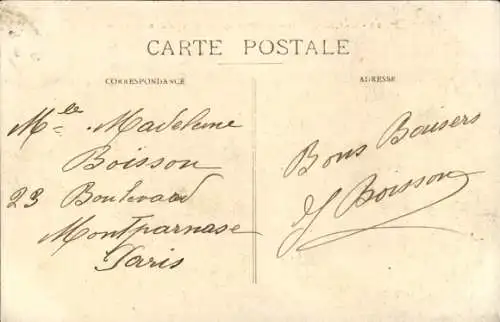 CARTE POSTALE
CORRESPONDANCE
ADRESSE
Mlle Madeleine
Boisson
23 Boulevard
Montparnase
Paris
Bons Baisers
Y Boisson